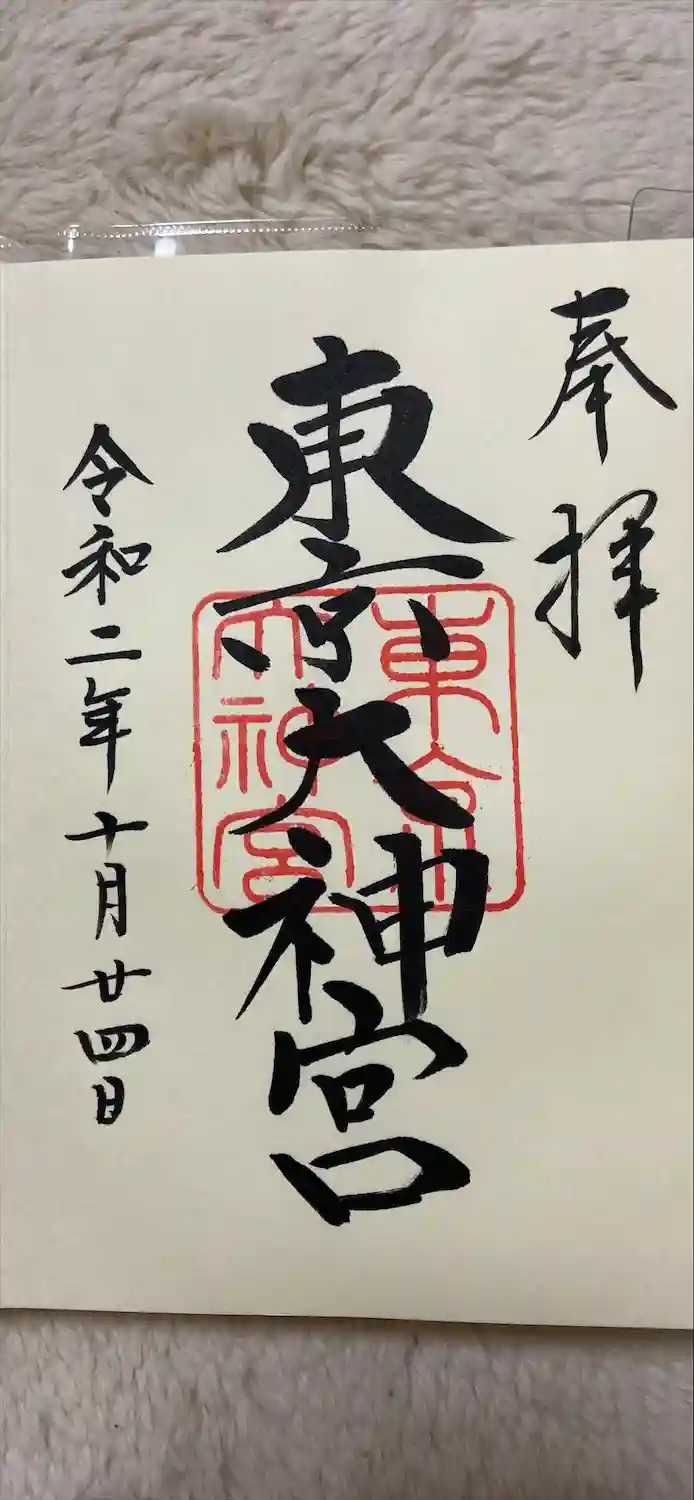 奉拝
東京大神宮
東京
大神宮
令和二年十月廿四日